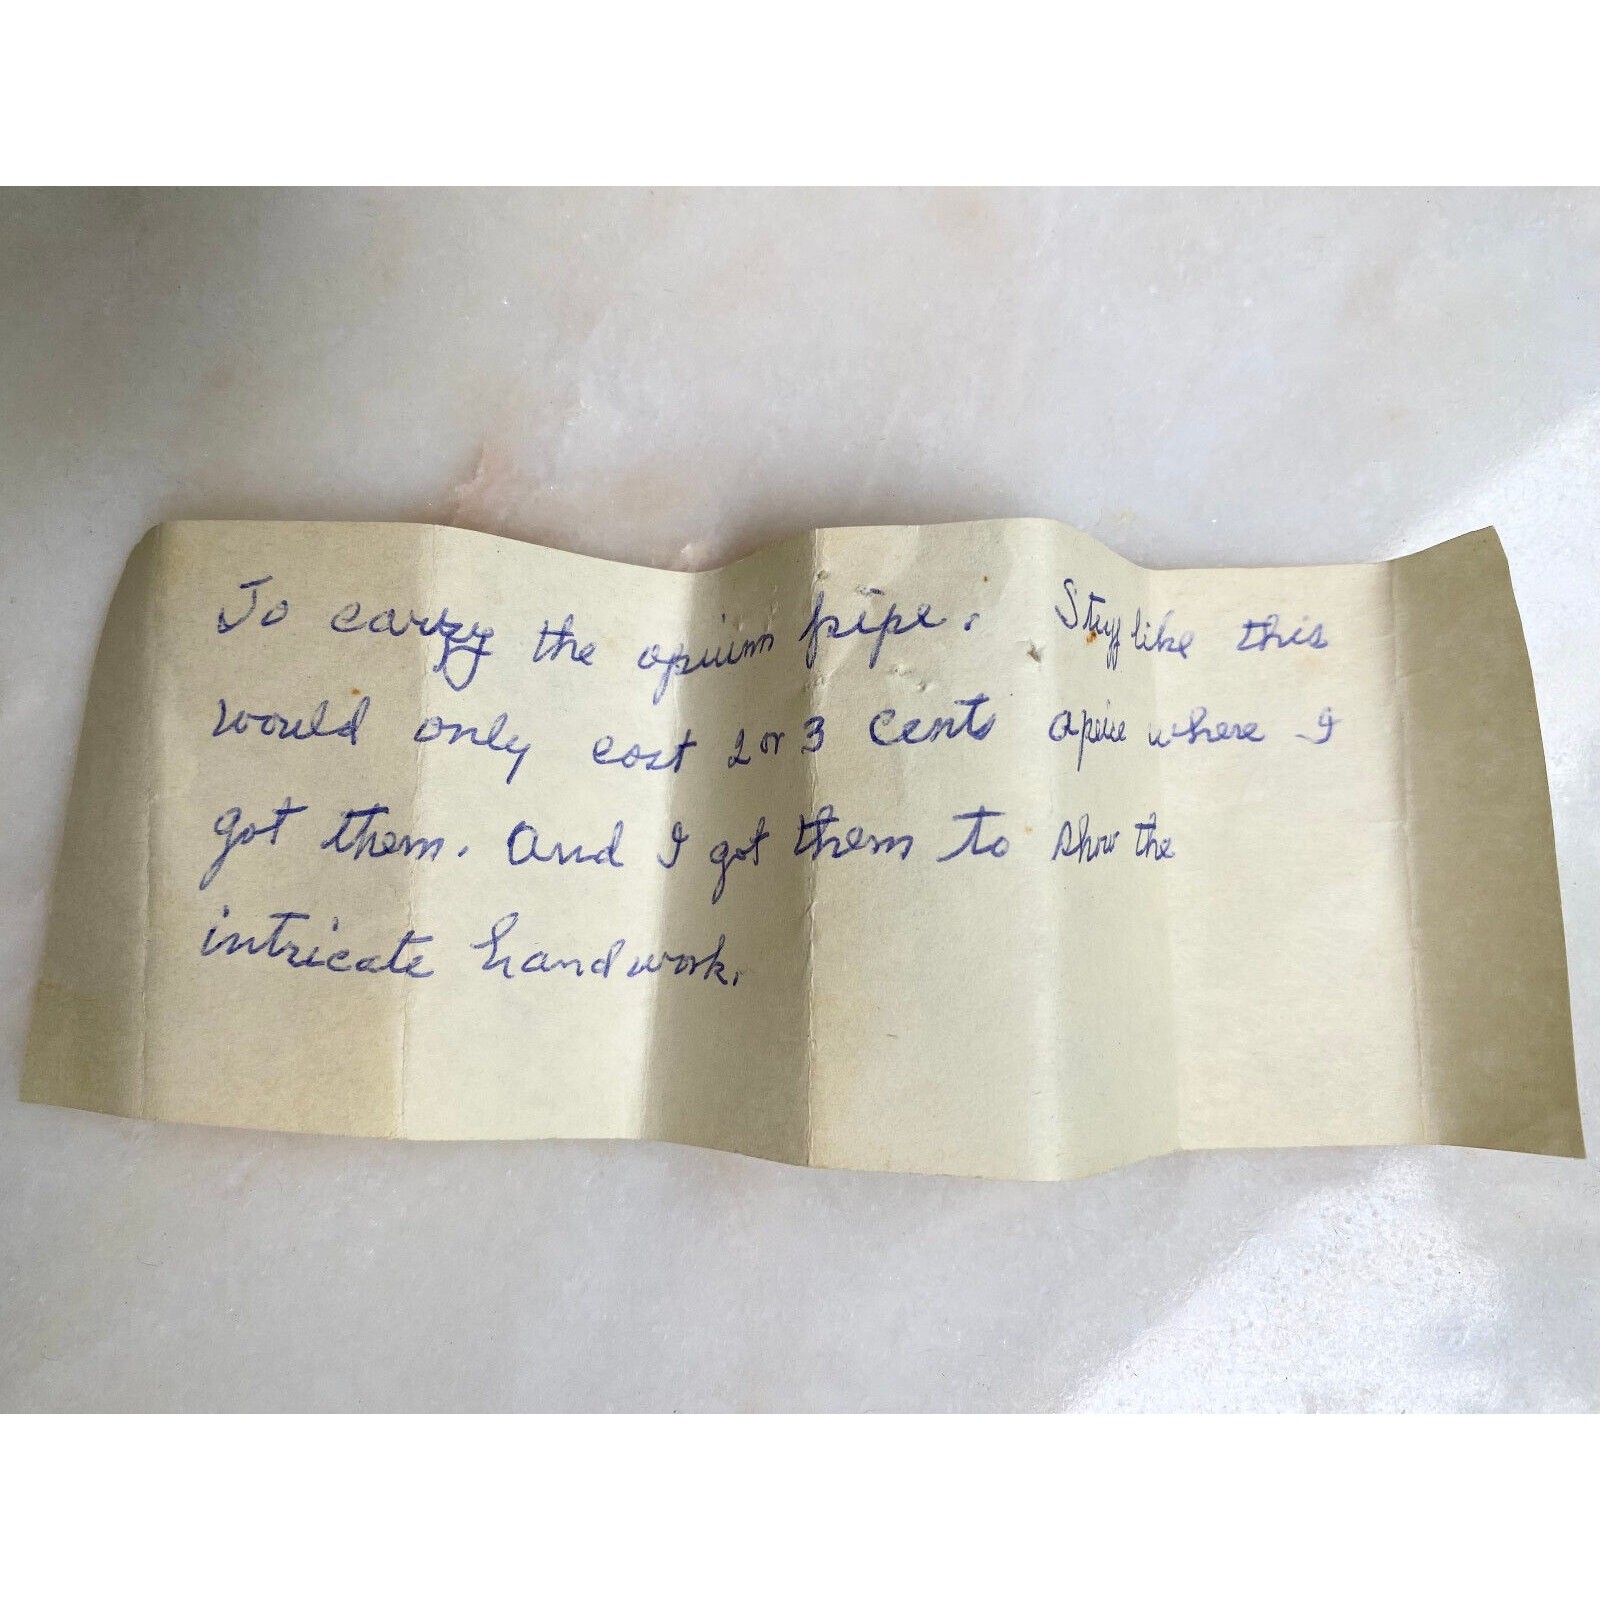 To carry the opium pipe. Stuff like this
would only cost 2 or 3 cents apiece where I
got them. And I got them to show the
intricate handwork.